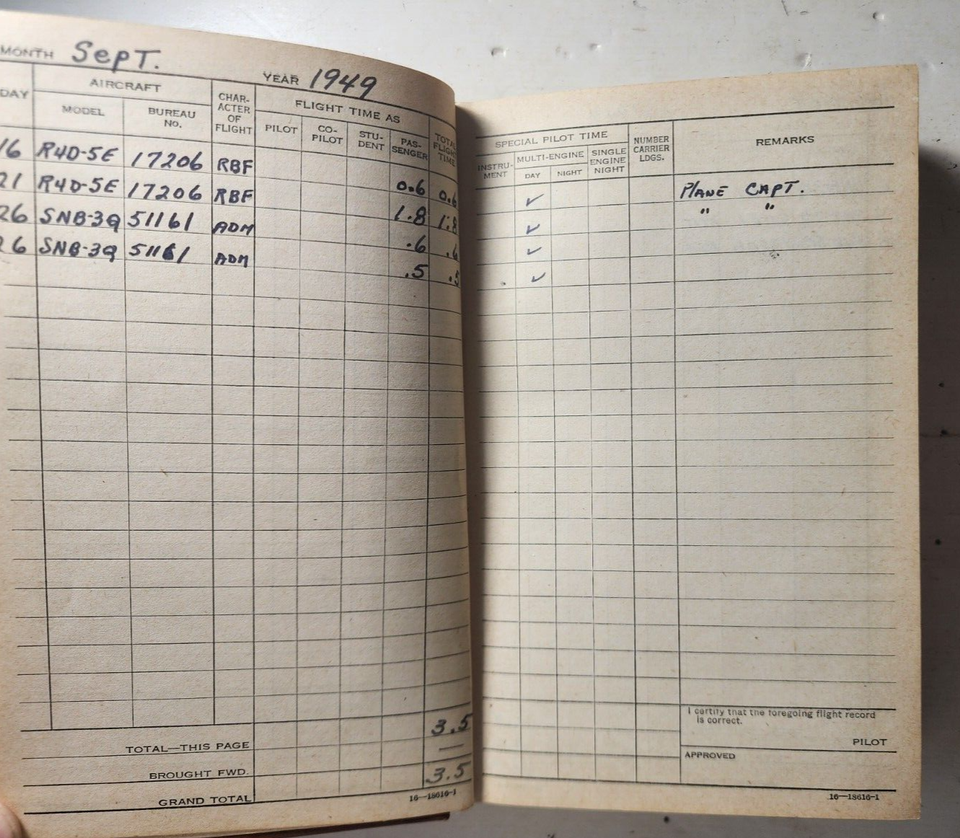 MONTH Sept. YEAR 1949
DAY AIRCRAFT CHAR-ACTER OF FLIGHT FLIGHT TIME AS TOTAL FLIGHT TIME
MODEL BUREAU NO. PILOT CO-PILOT STU-DENT PAS-SENGER
16 R4D-5E 17206 RBF 0.6 0.6
21 R4D-5E 17206 RBF 1.8 1.8
26 SNB-3Q 51161 ADM .6 .6
26 SNB-3Q 51161 ADM .5 .5
TOTAL—THIS PAGE 3.5
BROUGHT FWD. —
GRAND TOTAL 3.5
16—18616-1
SPECIAL PILOT TIME NUMBER CARRIER LDGS. REMARKS
INSTRU-MENT MULTI-ENGINE SINGLE ENGINE NIGHT
DAY NIGHT
✓ PLANE CAPT.
✓ " "
✓
✓
I certify that the foregoing flight record
is correct.
PILOT
APPROVED
16—18616-1